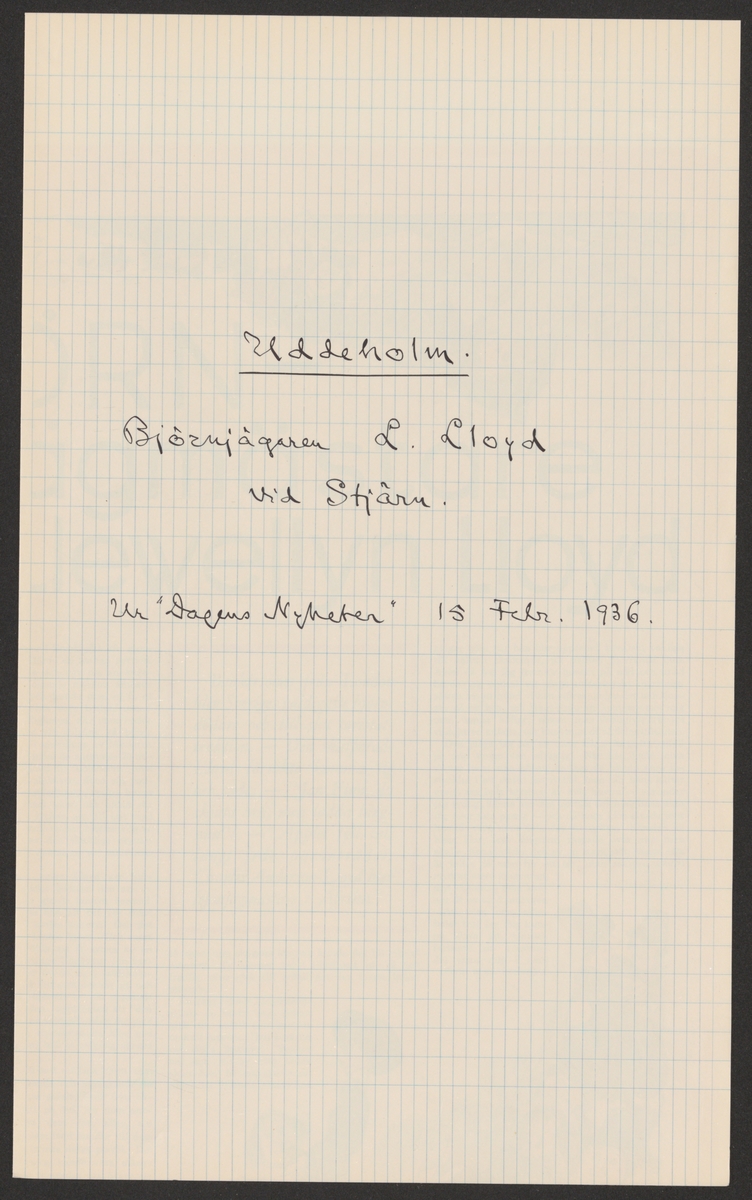 Uddeholm.
Björnjägaren L. Lloyd
vid Stjärn.
Ur "Dagens Nyheter" 15 Febr. 1936.